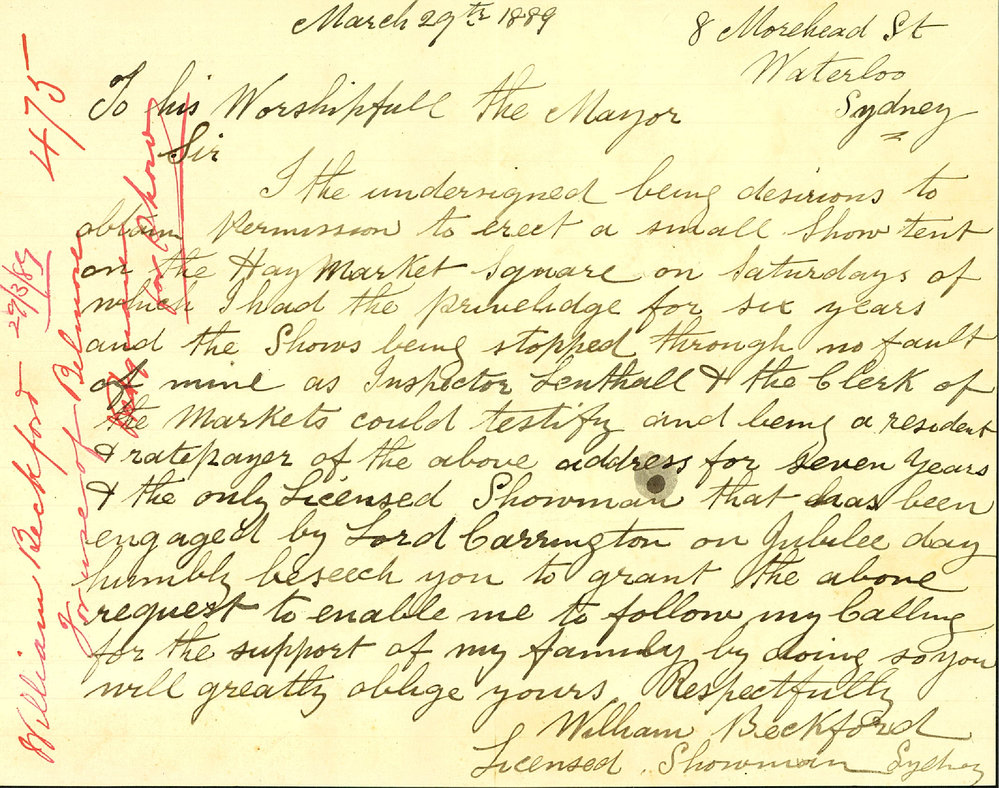 March 29th 1889
8 Morehead St
Waterloo
Sydney
To his Worshipfull the Mayor
Sir
I the undersigned being desirious to
obtain Permission to erect a small Show tent
on the Hay Market Square on Saturdays of
which I had the privelidge for six years
and the Shows being stopped through no fault
of mine as Inspector Lenthall & the Clerk of
the Markets could testify and being a resident
& ratepayer of the above address for seven Years
& the only Licensed Showman that has been
engaged by Lord Carrington on Jubilee day
humbly beseech you to grant the above
request to enable me to follow my Calling
for the support of my family by doing so you
will greatly oblige yours Respectfully
William Beckford
Licensed Showman Sydney
475
William Beckford 29/3/89
For use of Belmore
for Show